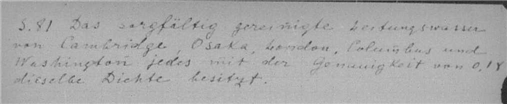 S. 81 Das sorgfältig gereinigte Leitungswasser
von Cambridge, Osaka, London, Columbus und
Washington jedes mit der Genauigkeit von 0,1 γ
dieselbe Dichte besitzt.